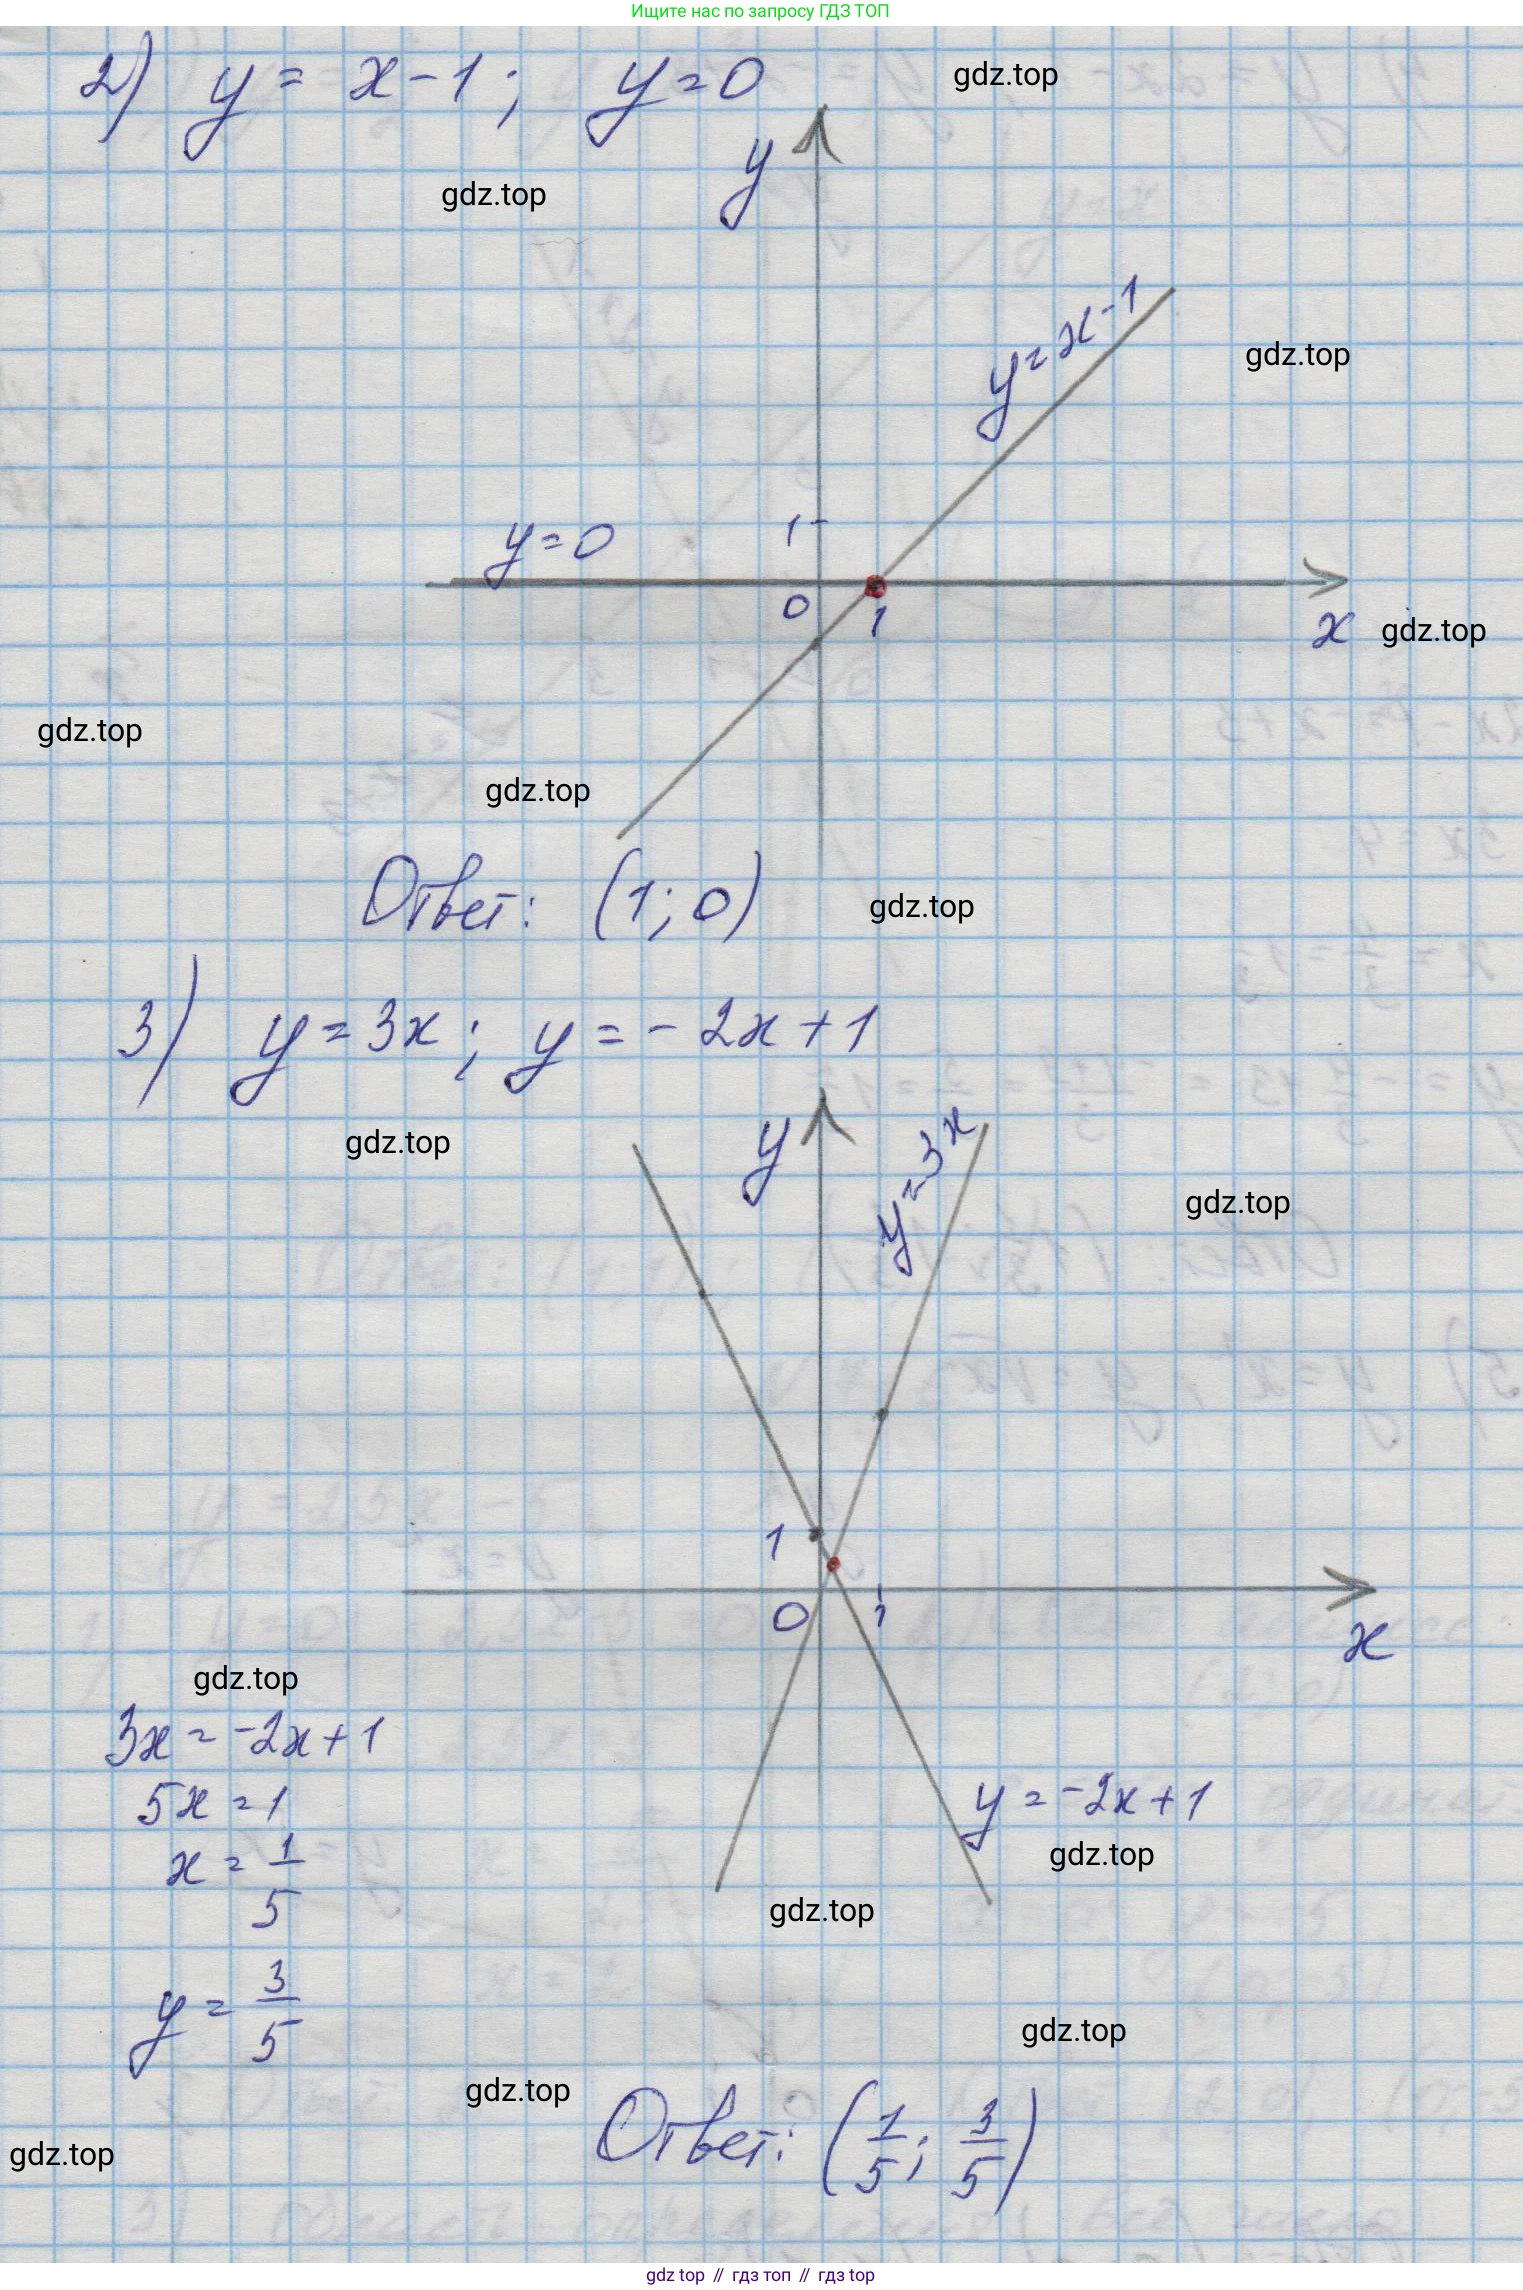 Ищите нас по запросу ГДЗ ТОП
2) y = x - 1 ; y = 0
gdz.top
y
gdz.top
y = x - 1
gdz.top
1
y = 0
0
1
x
gdz.top
gdz.top
gdz.top
Ответ: (1; 0)
gdz.top
3) y = 3x ; y = - 2x + 1
gdz.top
y
y = 3x
gdz.top
1
0
1
x
gdz.top
3x = -2x + 1
5x = 1
y = -2x + 1
x = 1/5
gdz.top
gdz.top
y = 3/5
gdz.top
gdz.top
Ответ: (1/5; 3/5)
gdz.top
gdz top // гдз топ // гдз top